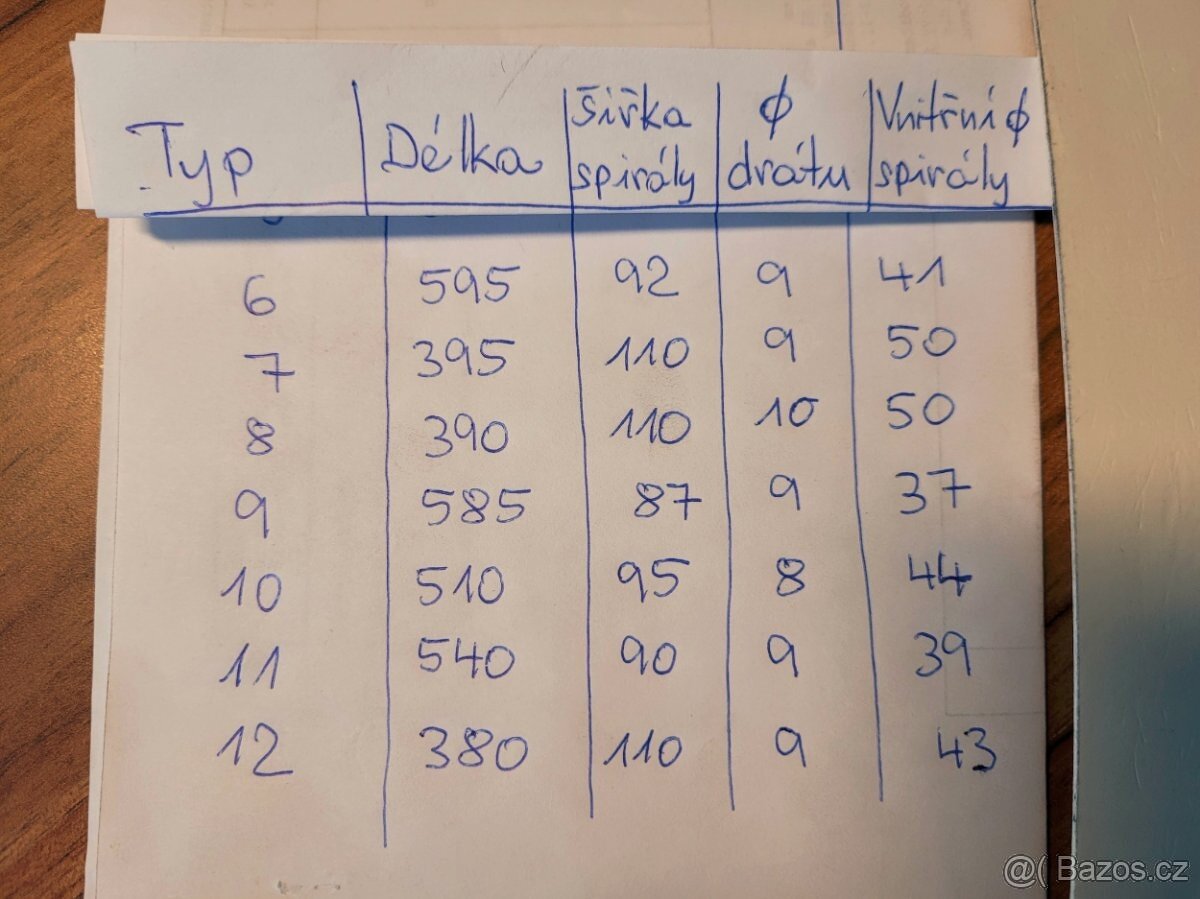 Typ Délka Šířka spirály ϕ drátu Vnitřní ϕ spirály
6 595 92 9 41
7 395 110 9 50
8 390 110 10 50
9 585 87 9 37
10 510 95 8 44
11 540 90 9 39
12 380 110 9 43
@( Bazos.cz